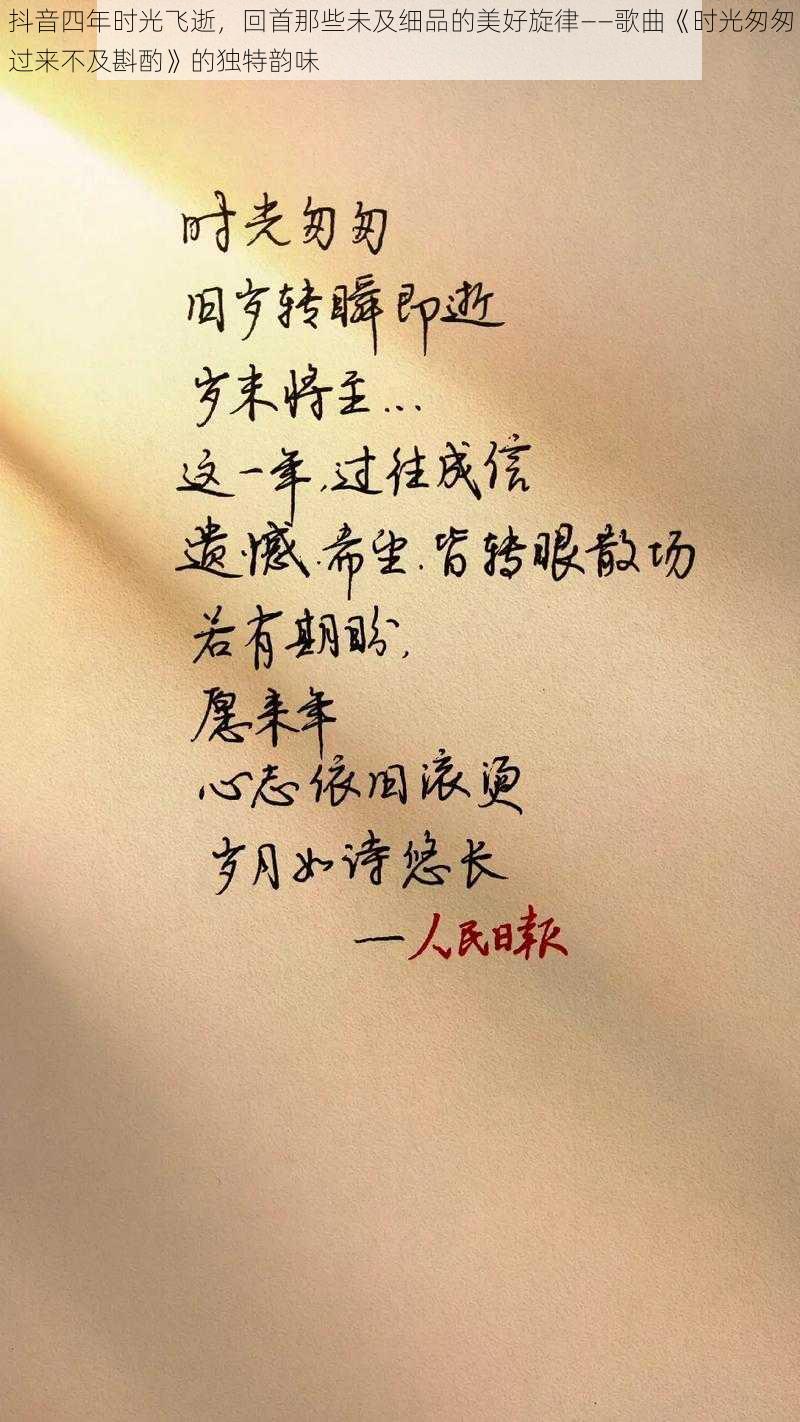 抖音四年时光飞逝，回首那些未及细品的美好旋律——歌曲《时光匆匆
过来不及斟酌》的独特韵味
时光匆匆
旧岁转瞬即逝
岁末将至...
这一年,过往成信
遗憾.希望.皆转眼散场
若有期盼,
愿来年
心志依旧滚烫
岁月如诗悠长
—人民日报